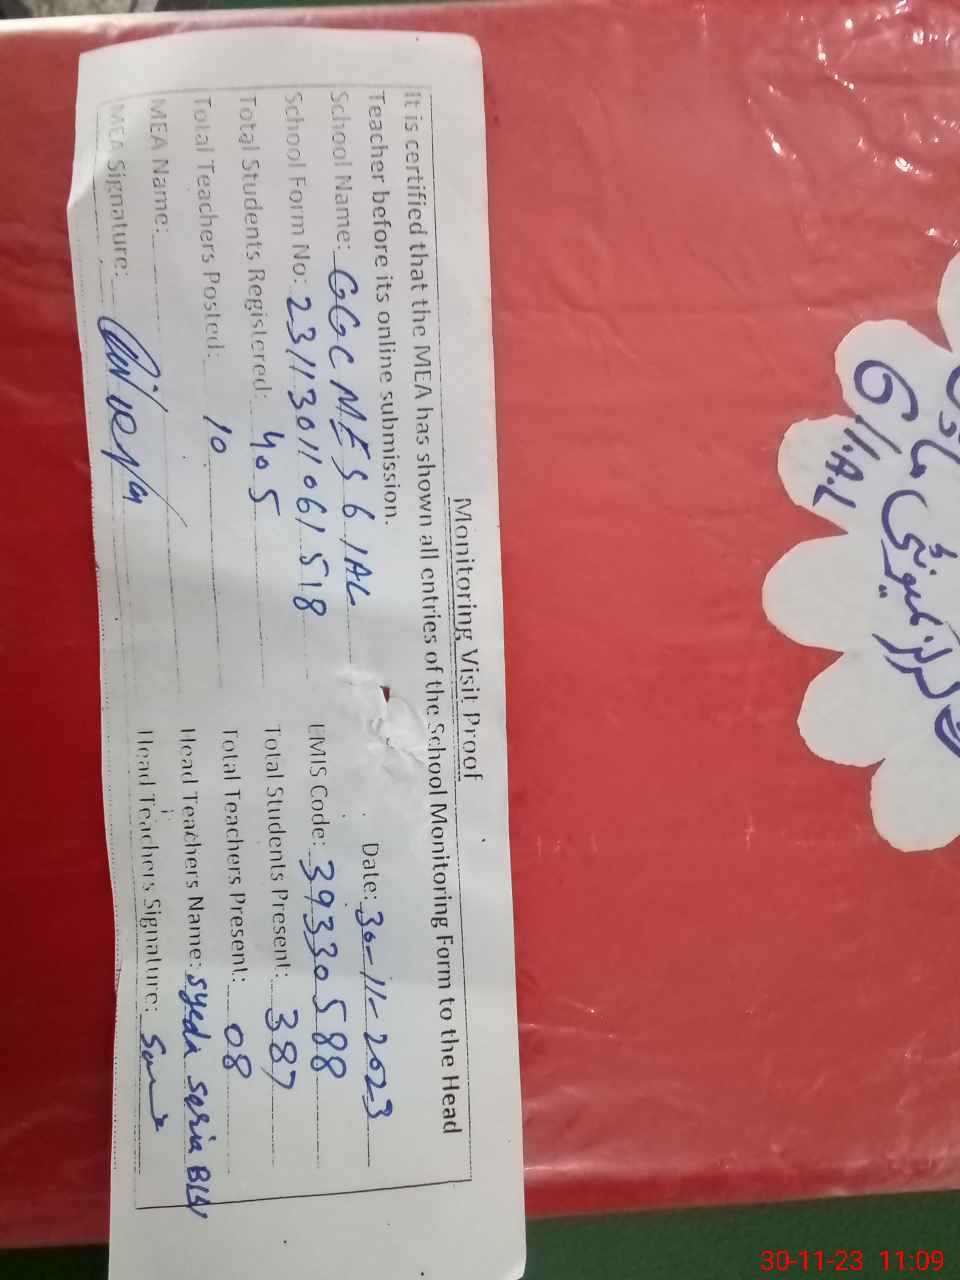 Monitoring Visit Proof
It is certified that the MEA has shown all entries of the School Monitoring Form to the Head
Teacher before its online submission.
Date: 30-11-2023
School Name: GGCMES 6/1AL
EMIS Code: 39330588
School Form No: 23113011061518
Total Students Present: 387
Total Students Registered: 405
Total Teachers Present: 08
Total Teachers Posted: 10
Head Teachers Name: Syeda
MEA Name:
Head Teachers Signature:
MEA Signature:
گرلز کمیونٹی ماڈل
6/1.A.L
30-11-23 11:09